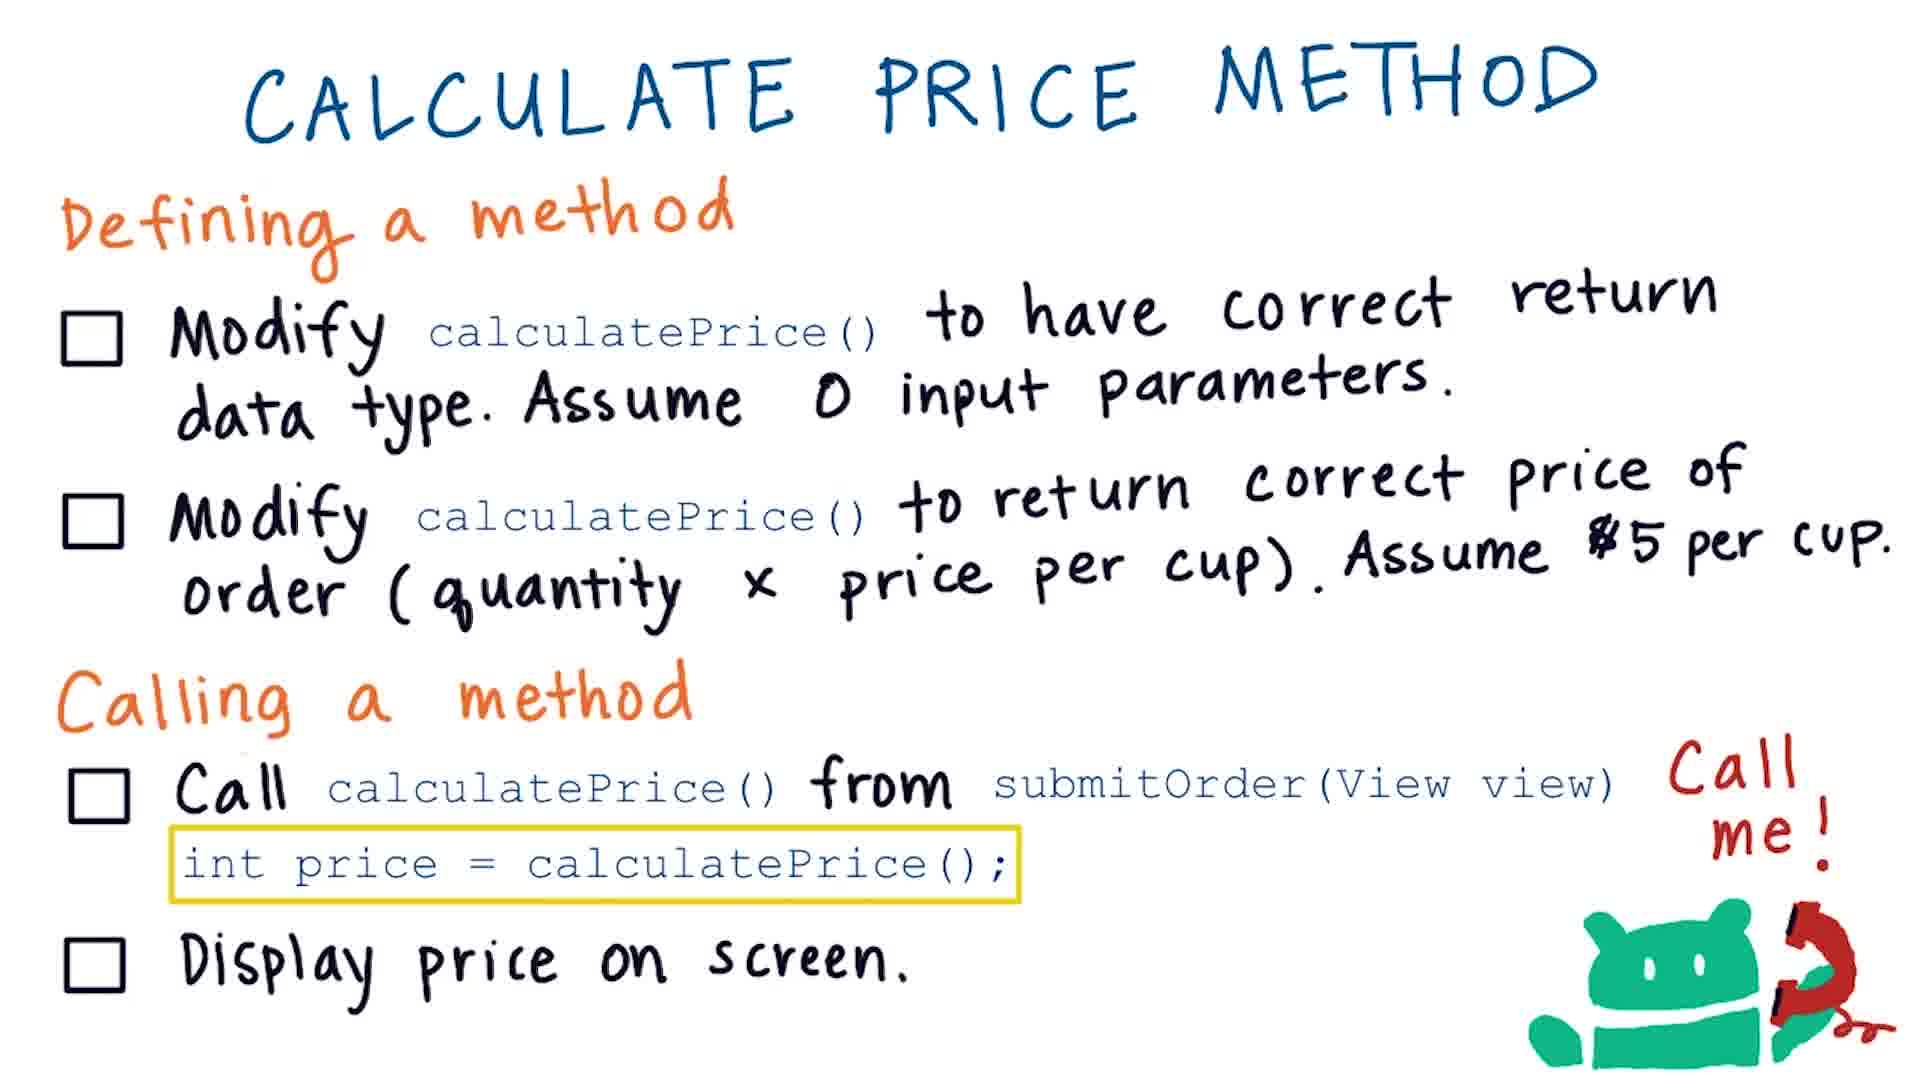 CALCULATE PRICE METHOD
Defining a method
Modify calculatePrice() to have correct return
data type. Assume 0 input parameters.
Modify calculatePrice() to return correct price of
order (quantity x price per cup). Assume $5 per cup.
Calling a method
Call calculatePrice() from submitOrder(View view)
int price = calculatePrice();
Display price on screen.
Call
me!